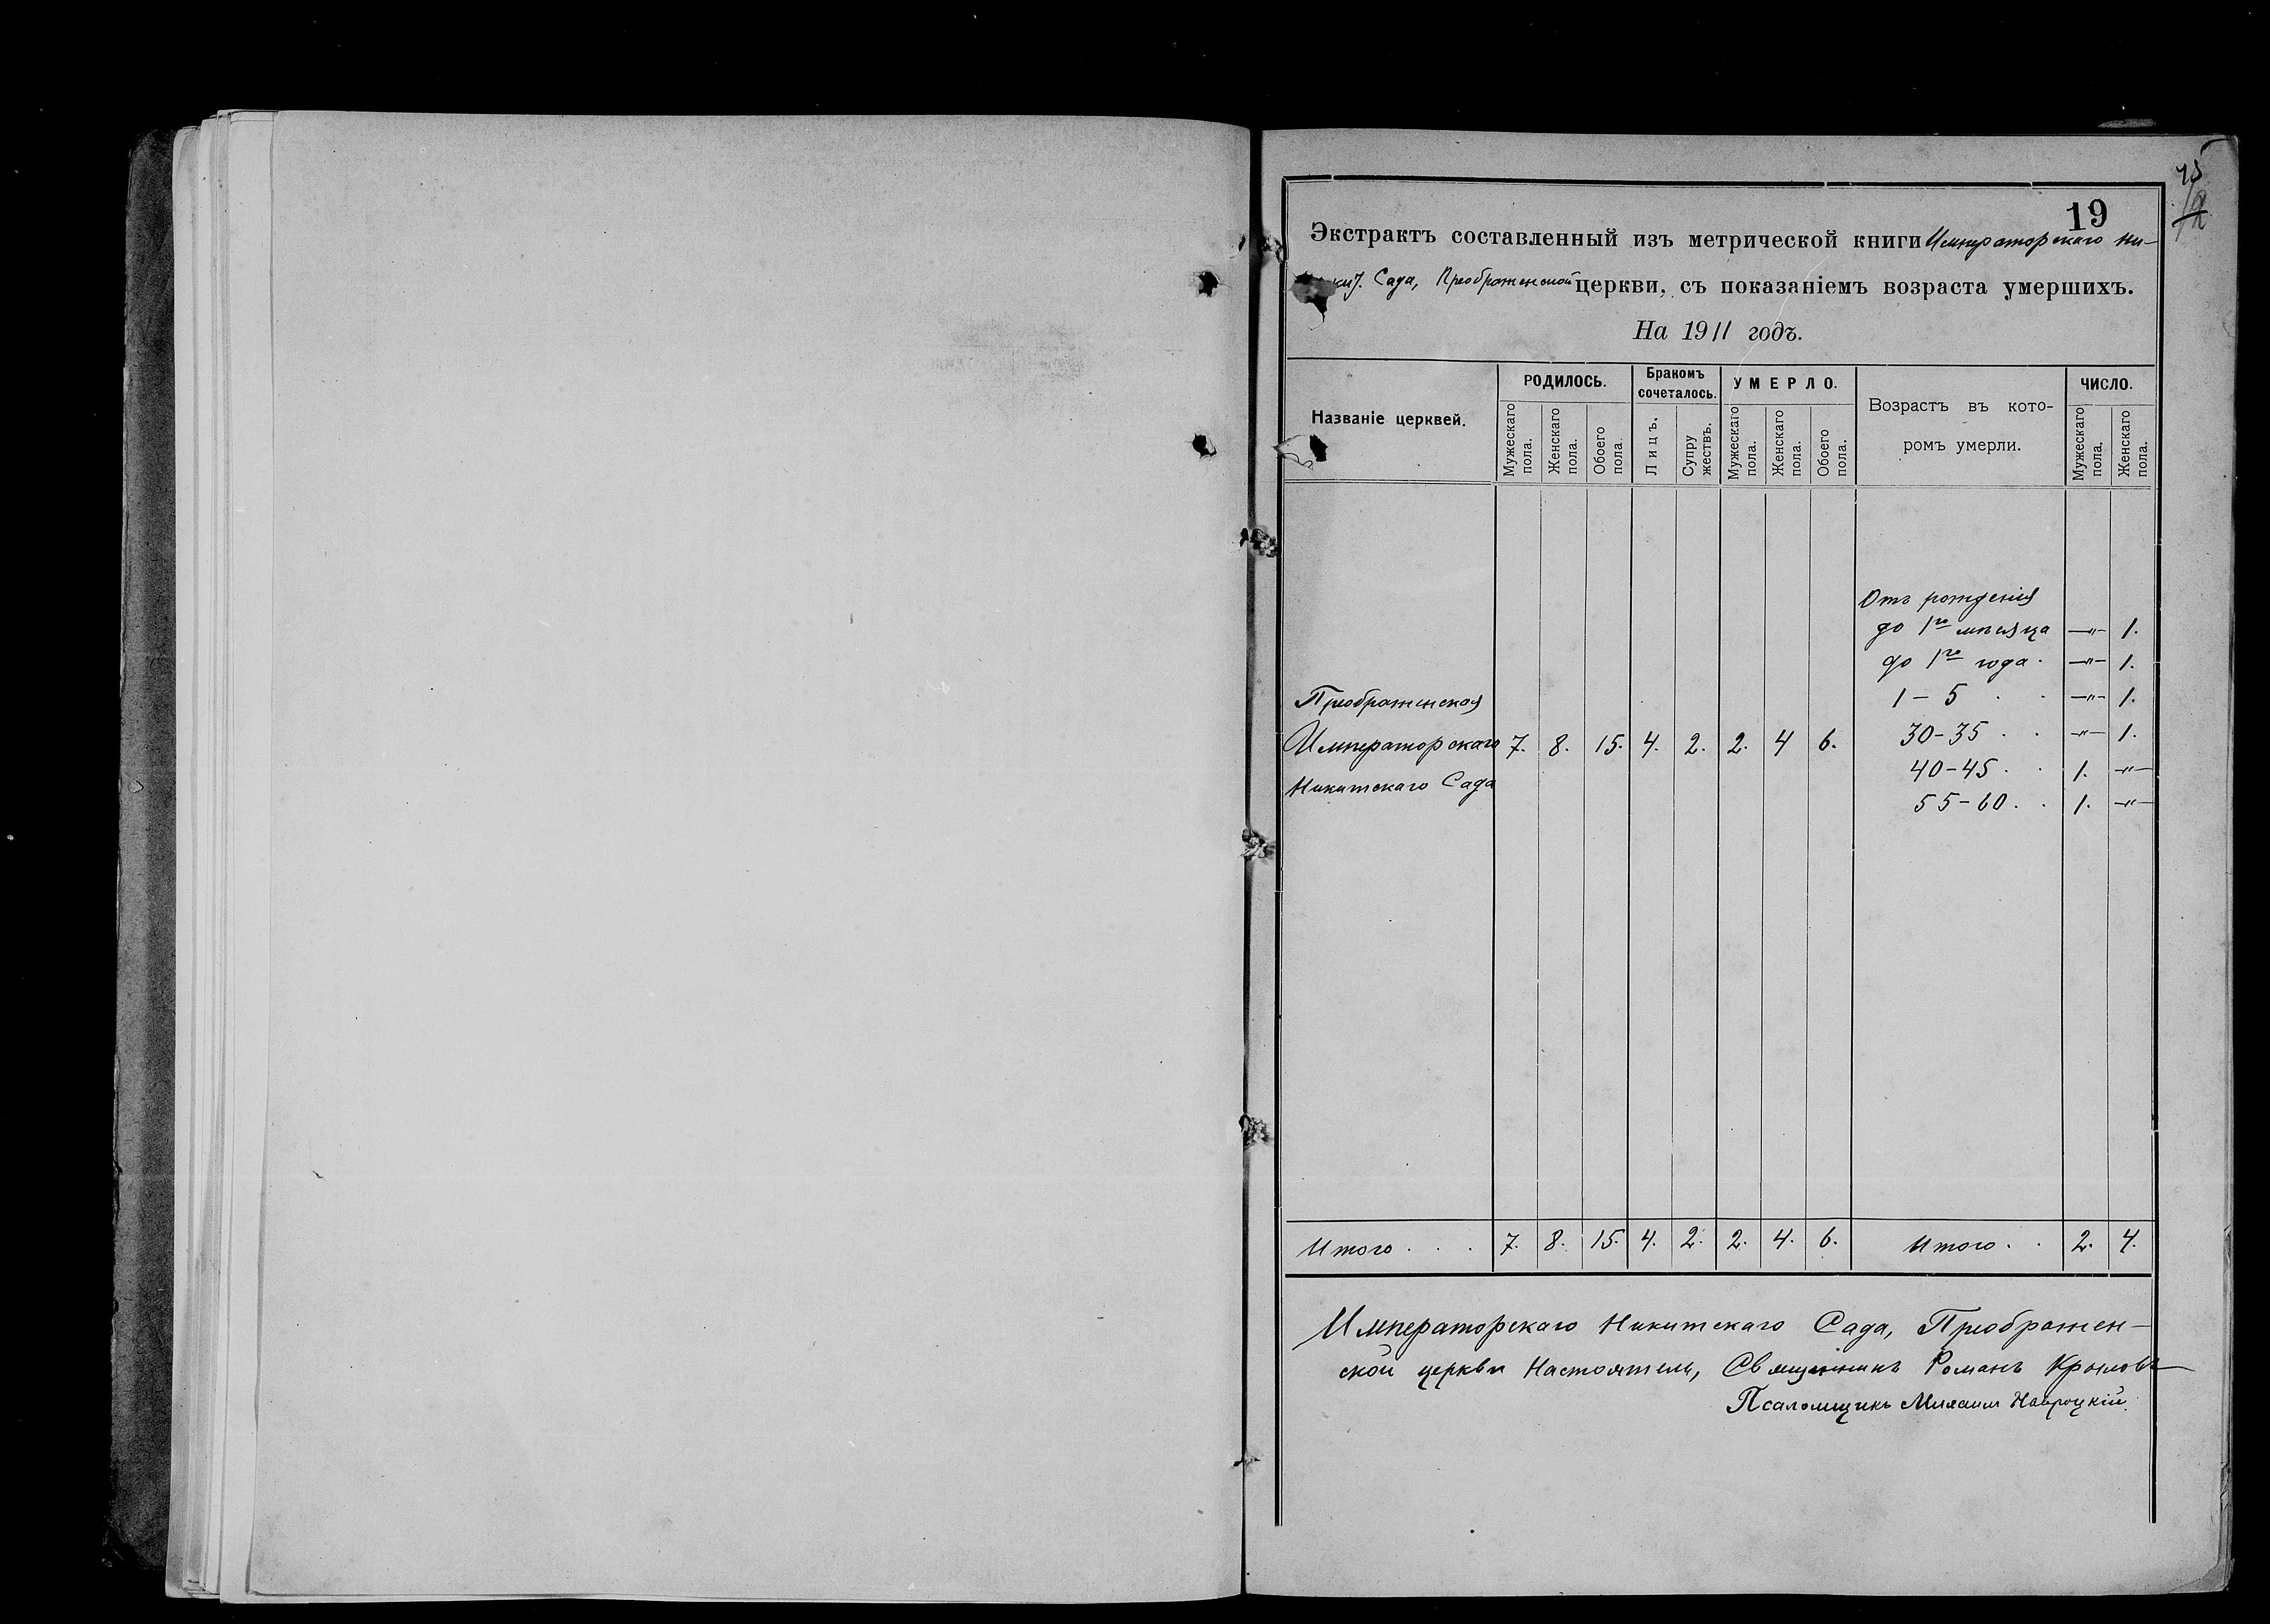 15
19
Экстрактъ составленный изъ метрической книги Императорскаго Ни-
Сада, Преображенской церкви, съ показаніемъ возраста умершихъ.
На 1911 годъ.
Названіе церквей. РОДИЛОСЬ. Бракомъ сочеталось. УМЕРЛО. Возрастъ въ кото-ромъ умерли. ЧИСЛО.
Мужескаго пола. Женскаго пола. Обоего пола. Лицъ. Супружествъ. Мужескаго пола. Женскаго пола. Обоего пола. Мужескаго пола. Женскаго пола.
Отъ рожденія
до 1го мѣсяца —"— 1.
до 1го года. —"— 1.
1-5 . . —"— 1.
Преображенская
30-35 . . —"— 1.
Императорскаго 7. 8. 15. 4. 2. 2. 4 6.
40-45 . . 1. —"—
Никитскаго Сада
55-60 . . 1. —"—
Итого . . . 7. 8. 15. 4. 2. 2. 4. 6. Итого . . 2. 4.
Императорскаго Никитскаго Сада, Преображен-
ской церкви Настоятель, Священникъ Романъ Крыловъ
Псаломщикъ Михаилъ Навроцкій.